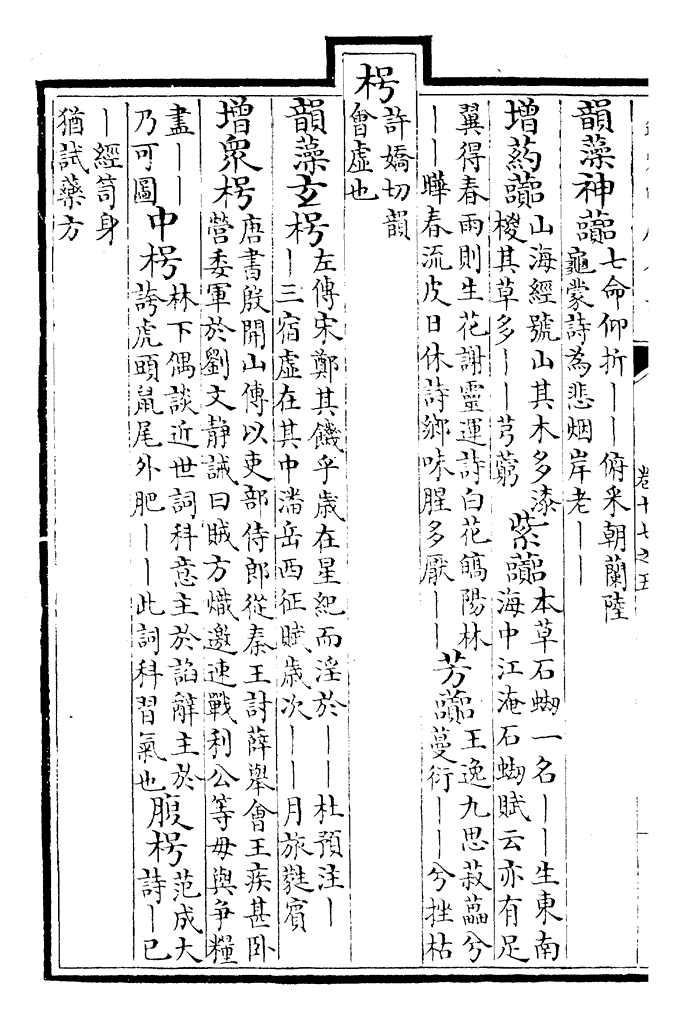 韻藻神虈
七命仰折——俯采朝蘭陸
龜蒙詩為悲烟岸老——
增葯虈
山海經號山其木多漆
椶其草多——芎藭
紫虈
本草石蜐一名——生東南
海中江淹石蜐賦云亦有足
翼得春雨則生花謝靈運詩白花皜陽林
——曄春流皮日休詩鄉味腥多厭——
芳虈
王逸九思菽藟兮
蔓衍——兮挫枯
枵
許嬌切韻
會虛也
韻藻玄枵
左傳宋鄭其饑乎歲在星紀而淫於——杜預注—
—三宿虛在其中潘岳西征賦歲次——月旅蕤賓
增衆枵
唐書殷開山傳以吏部侍郎從秦王討薛舉會王疾甚卧
營委軍於劉文静誡曰賊方熾邀速戰利公等毋與爭糧
盡——
乃可圖
中枵
林下偶談近世詞科意主於諂辭主於
誇虎頭鼠尾外肥——此詞科習氣也
腹枵
范成大
詩—已
—經笥身
猶試藥方
卷十七之五